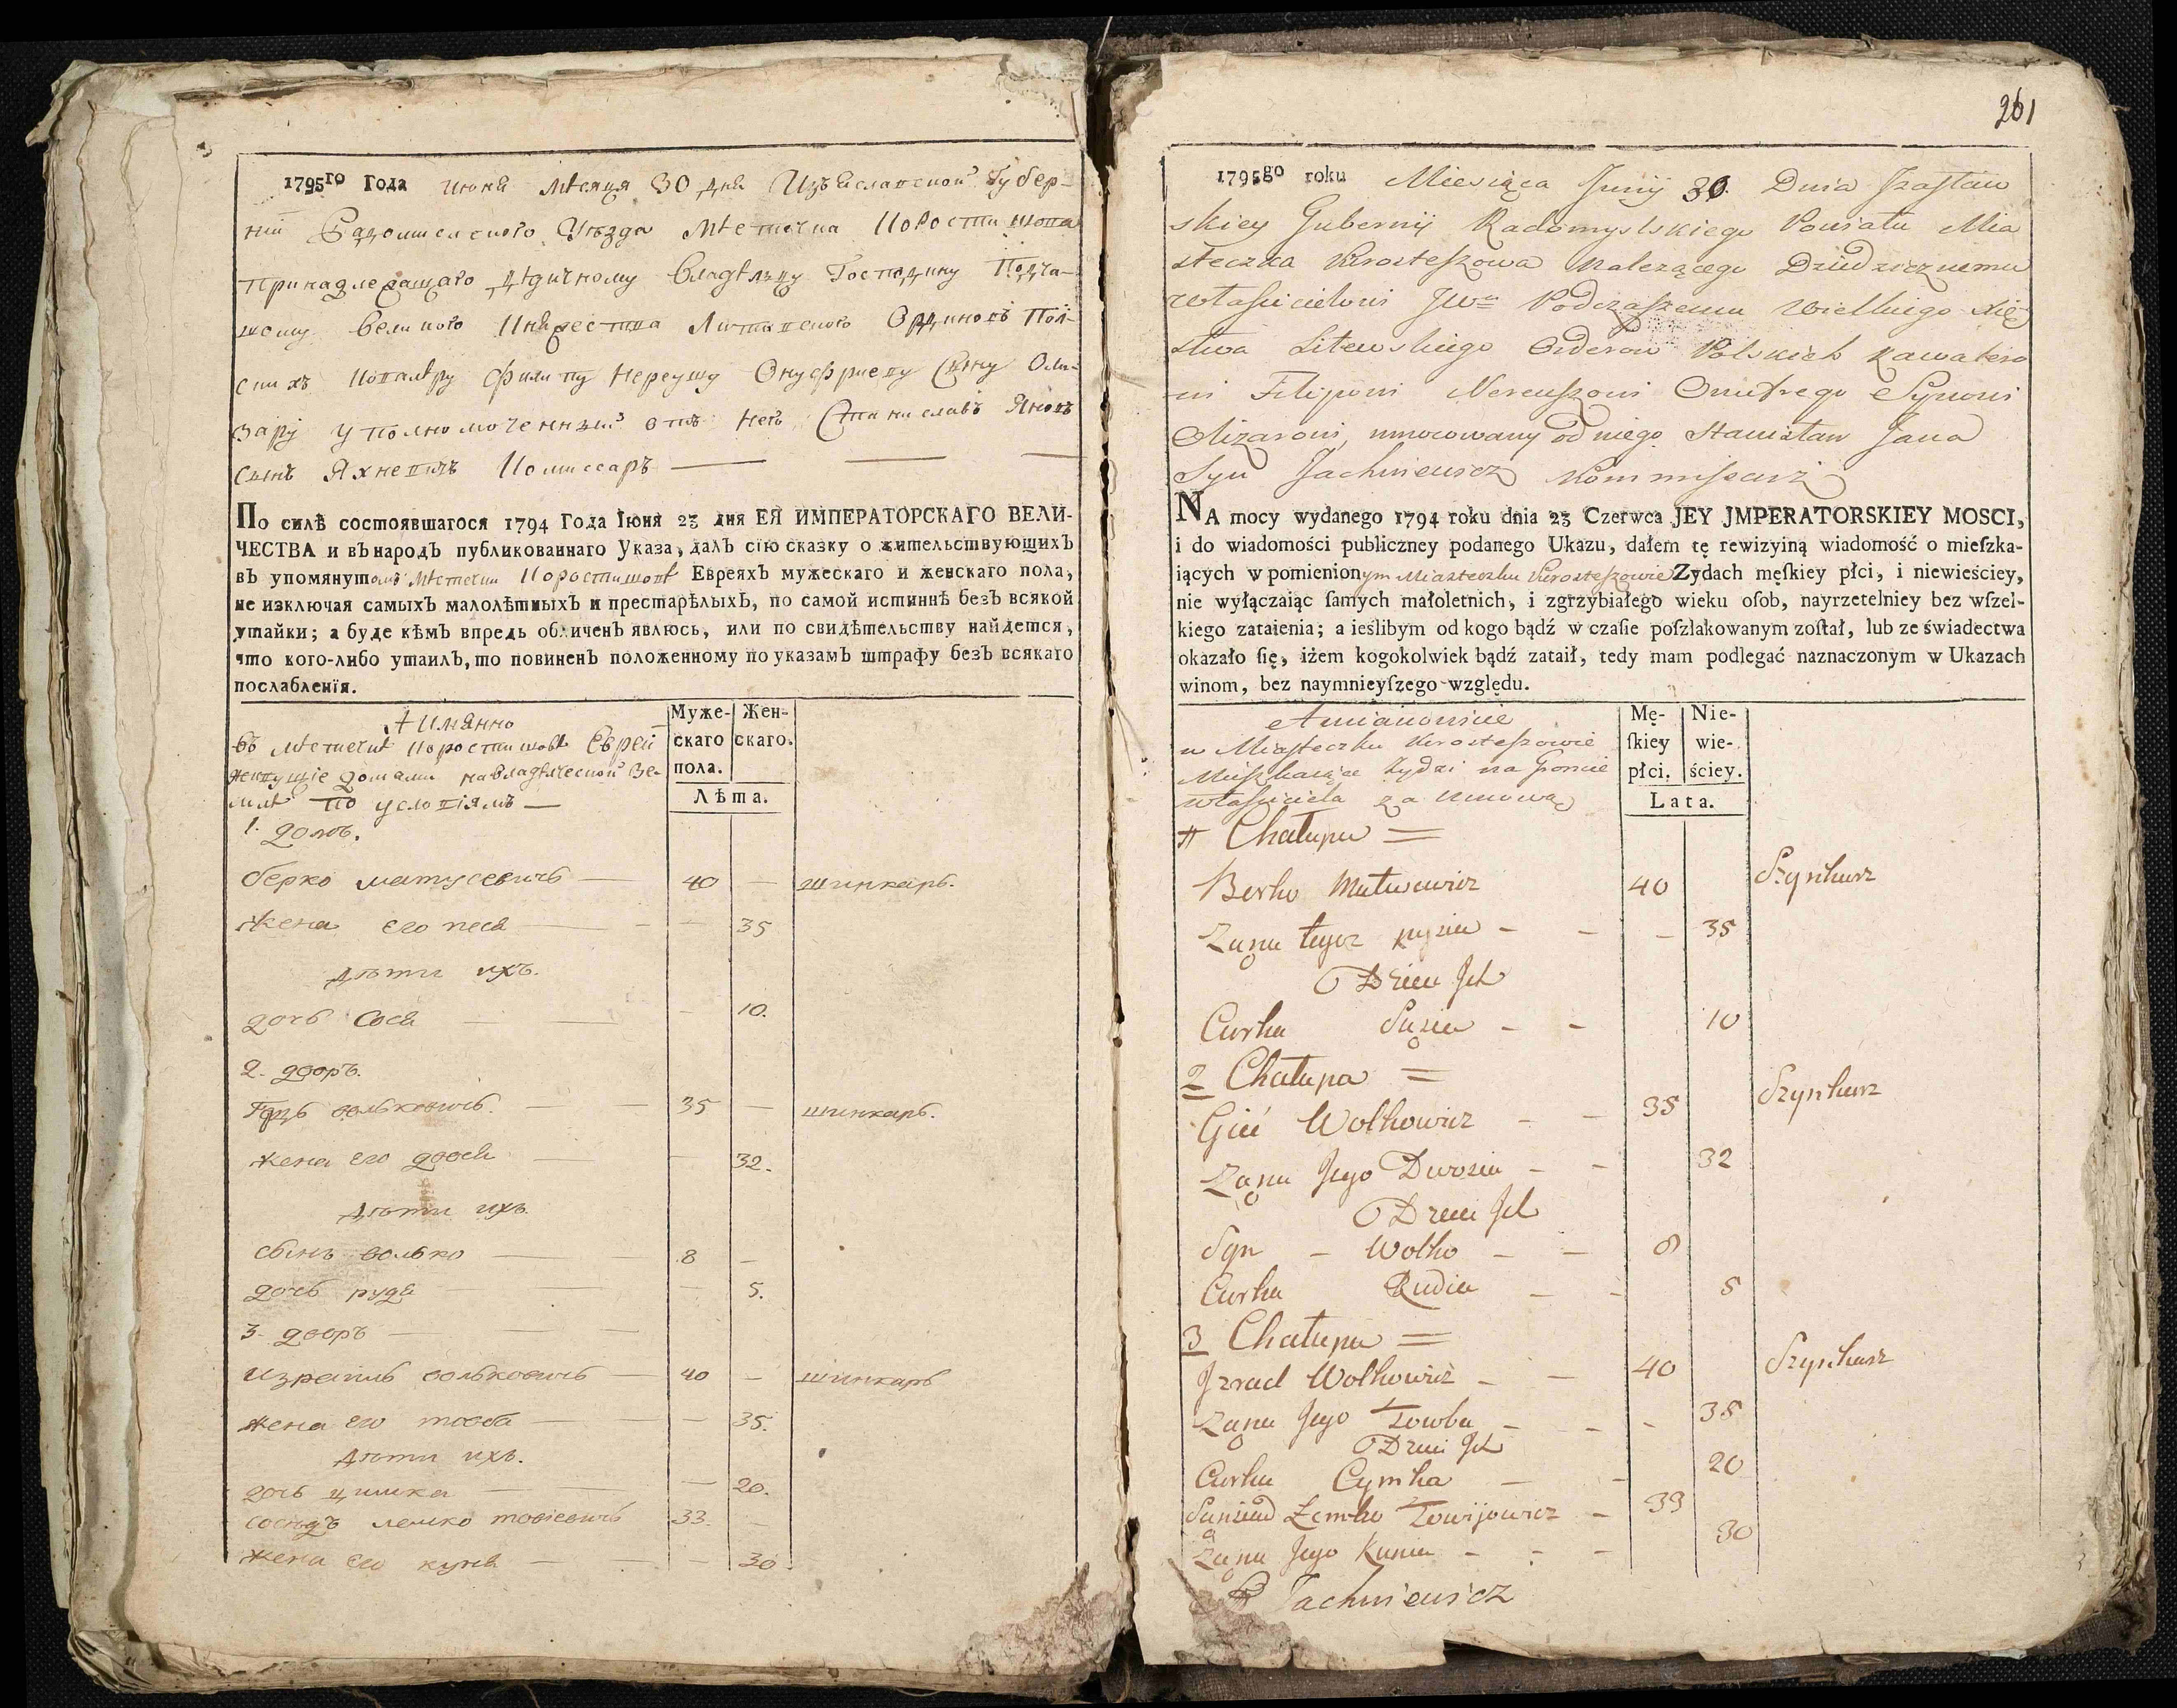 1795го Года Июня Мѣсяца 30 дня Изъяславской Губер-
нїи Радомысльского Уѣзда Мѣстечка Коростишова
принадлежащаго дѣдичному владѣльцу Господину Подча-
шому Великого Княжества Литавского Ординовъ Пол-
скихъ Ковалѣру Филипу Нереушу Онуфриеву Сыну Оли-
зару уполномоченный отъ него Станиславъ Яновъ
Сынъ Яхневичъ Комиссаръ
По силѣ состоявшагося 1794 Года Їюня 23 дня ЕЯ ИМПЕРАТОРСКАГО ВЕЛИ-
ЧЕСТВА и въ народъ публикованнаго Указа, далъ сїю сказку о жительствующихъ
въ упомянутомъ Мѣстечки Коростишовѣ Евреяхъ мужескаго и женскаго пола,
не изключая самыхъ малолѣтныхъ и престарѣлыхъ, по самой истиннѣ безъ всякой
утайки; а буде кѣмъ впредь обличенъ явлюсь, или по свидѣтельству найдется,
что кого-либо утаилъ, то повиненъ положенному по указамъ штрафу безъ всякаго
послабленїя.
А имянно
въ мѣстечкѣ Коростишовѣ Еврей
живущїе домами на владѣлческой зе-
млѣ по условїямъ
Муже-
скаго
пола.
Жен-
скаго.
Лѣта.
1. домъ.
берко матусевичь 40 — шинкарь.
жена его песя — 35
дѣти ихъ.
дочь сося — 10.
2. дворъ.
Гець волковичь. 35 — шинкарь.
жена его двося — 32.
дѣти ихъ
сынъ волько 8 —
дочь рудя — 5.
3. дворъ
израиль вольковичь 40 — шинкарь
жена его товба — 35.
дѣти ихъ.
дочь цимка — 20.
сосѣдъ лемко товіевичь 33. —
жена его куня — 30.
261
1795go roku Miesiąca Junij 30. Dnia Jzasław
skiey Gubernij Radomyslskiego Powiatu Mia
steczka Korosteszowa należącego Dziedzicznemu
własicielowi JWu Podczaszemu Wielkiego Xię
stwa Litewskiego Orderow Polskich Kawalero
wi Filipowi Nereuszowi Onufrego Synowi
Olizarowi, umocowany od niego Stanisław Jana
Syn Jachniewicz Kommisarz
NA mocy wydanego 1794 roku dnia 23 Czerwca JEY JMPERATORSKIEY MOSCI,
i do wiadomości publiczney podanego Ukazu, dałem tę rewizyiną wiadomość o mieſzka-
iących w pomienionym Miasteczku Korosteszowie Zydach męſkiey płci, i niewieściey,
nie wyłączaiąc ſamych małoletnich, i zgrzybiałego wieku oſob, nayrzetelniey bez wſzel-
kiego zataienia; a ieślibym od kogo bądź w czaſie poſzlakowanym zoſtał, lub ze świadectwa
okazało ſię, iżem kogokolwiek bądź zataił, tedy mam podlegać naznaczonym w Ukazach
winom, bez naymnieyſzego względu.
A mianowicie
w Miasteczku Korosteszowie
Mieszkaiące Żydzi na Gruncie
własiciela za umową
Mę-
ſkiey
płci.
Nie-
wie-
ściey.
Lata.
1 Chałupa =
Berko Matusewicz 40 Szynkarz
Zona Iego Pesia - - - 35
Dzieci Jch
Curka Susia - - 10
2 Chałupa =
Gieć Wolkowicz - - 35 Szynkarz
Zona Jego Dwosia - - 32
Dzieci Jch
Syn - Wolko - - 8
Curka Rudia - - 5
3 Chałupa =
Jzrael Wolkowicz - - 40 Szynkarz
Zona Jego Towba - - - 35
Dzieci Jch
Curka Cymka - - 20
Sąsiad Lemko Towijowicz - 33
Zona Jego Kunia - - - 30
Jachniewicz